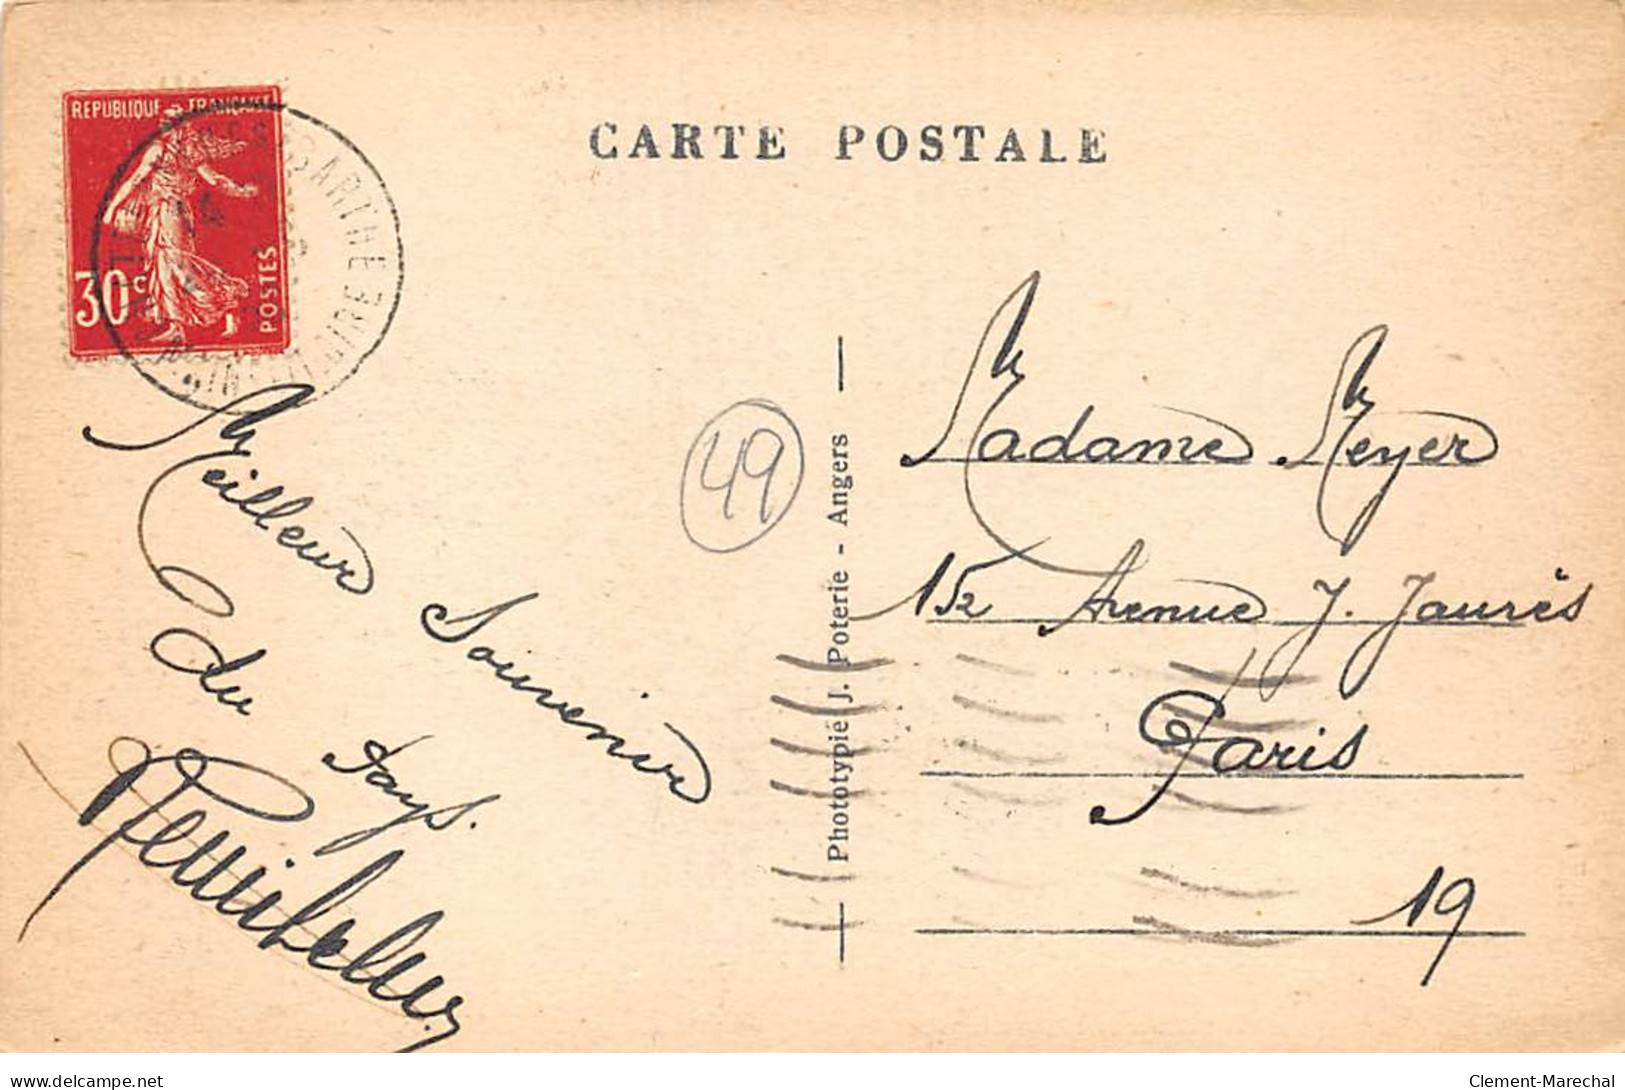 REPUBLIQUE FRANÇAISE
30c
POSTES
CARTE POSTALE
Meilleur
Souvenir
du
Pays.
49
Phototypie J. Poterie - Angers
Madame Meyer
152 Avenue J. Jaurès
Paris
19
delcampe.net
Clement-Marechal